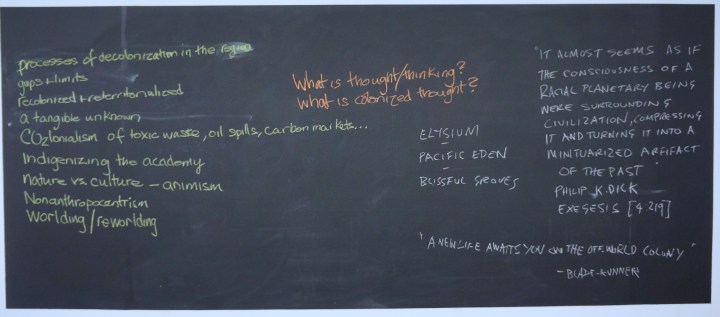 processes of decolonization in the region
gaps + limits
recolonized + reterritorialized
a tangible unknown
CO2lonialism of toxic waste, oil spills, carbon markets...
Indigenizing the academy
nature vs culture - animism
Nonanthropocentrism
Worlding/reworlding
What is thought/thinking?
What is colonized thought?
ELYSIUM
-
PACIFIC EDEN
-
BLISSFUL GROVES
"IT ALMOST SEEMS AS IF
THE CONSCIOUSNESS OF A
RACIAL PLANETARY BEING
WERE SURROUNDING
CIVILIZATION, COMPRESSING
IT AND TURNING IT INTO A
MINTUARIZED ARTIFACT
OF THE PAST"
PHILIP K. DICK
EXEGESIS [4.219]
"A NEW LIFE AWAITS YOU ON THE OFF WORLD COLONY"
- BLADE RUNNER